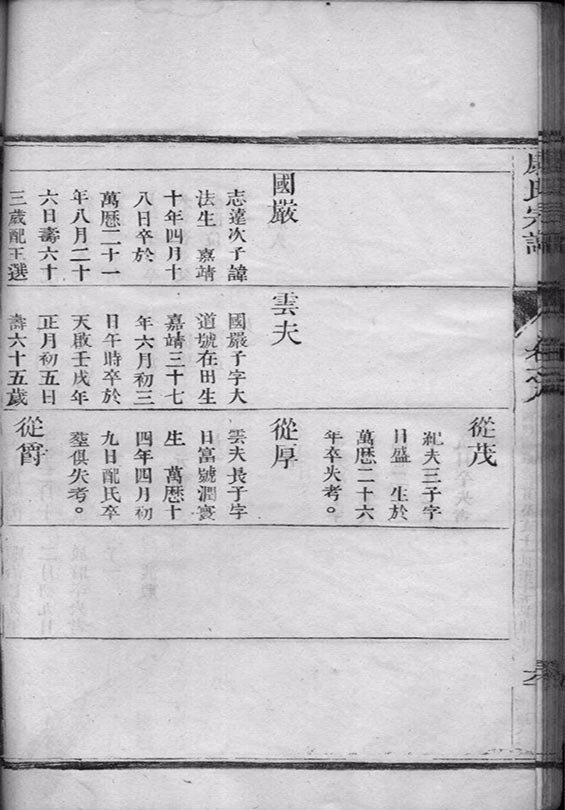 國嚴
志達次子諱
法生 嘉靖
十年四月十
八日卒於
萬曆二十一
年八月二十
六日壽六十
三歲配王選
雲夫
國嚴子字大
道號在田生
嘉靖三十七
年六月初三
日午時卒於
天啟壬戌年
正月初五日
壽六十五歲
從茂
紀夫三子字
日盛 生於
萬曆二十六
年卒失考。
從厚
雲夫長子字
日富號潤寰
生 萬曆十
四年四月初
九日配氏卒
塟俱失考。
從爵
氏宗譜